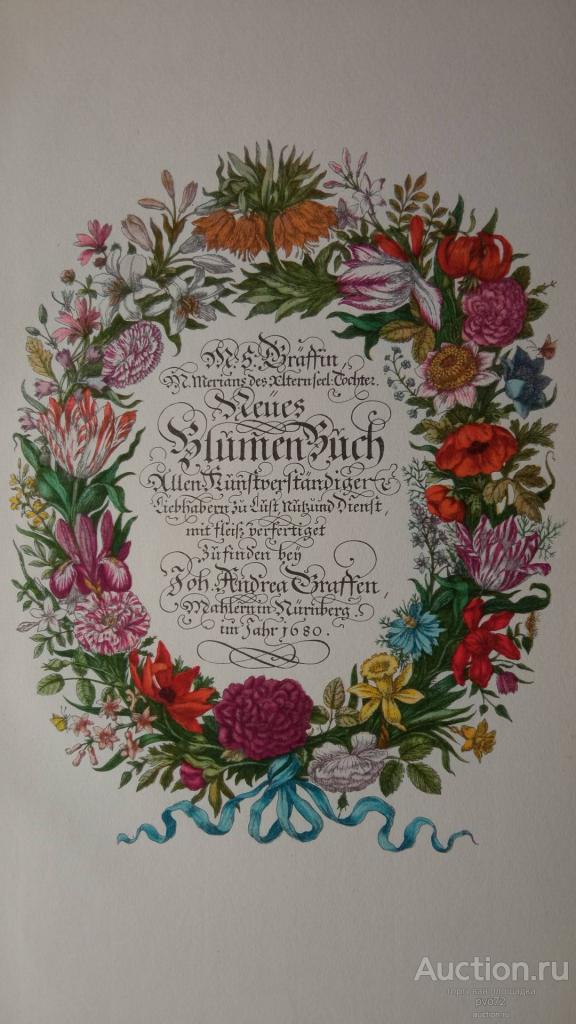 M. S. Gräffin
M. Merians des Æltern seel: Tochter.
Neües
Blumen Buch
Allen Kunstverständigen
Liebhabern zu Lust, Nutz und Dienst,
mit fleiß verfertiget
Zu finden bey
Joh. Andrea Graffen,
Mahlern in Nürnberg.
im Jahr 1680.
Auction.ru
торговая площадка
pv072
auction.ru